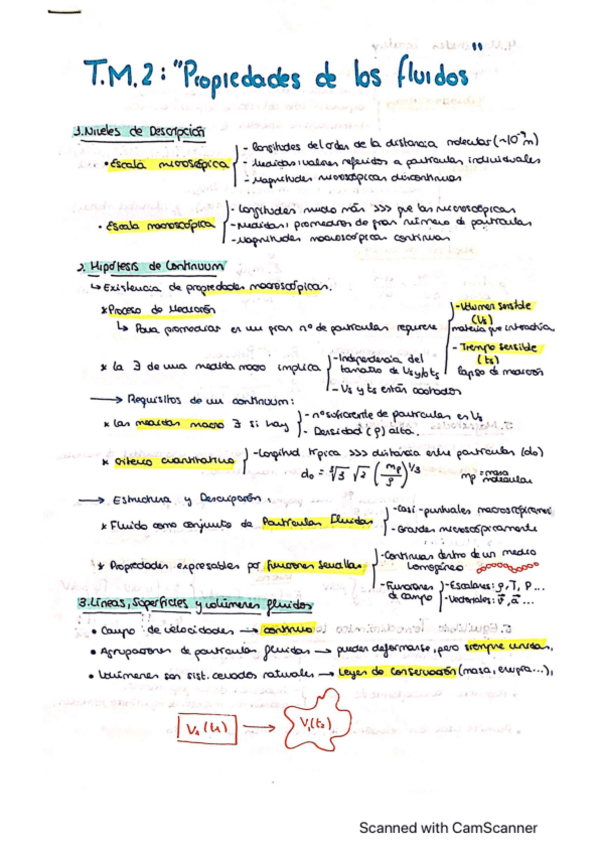 T.M.2: "Propiedades de los fluidos"
1. Niveles de Descripción
• Escala microscópica
- Longitudes del orden de la distancia molecular (~10⁻⁹m)
- Medidas: valores referidos a partículas individuales
- Magnitudes microscópicas discontinuas
• Escala macroscópica
- Longitudes mucho más >>> que las microscópicas
- Medidas: promedios de gran número de partículas
- Magnitudes macroscópicas continuas
2. Hipótesis de Continuum
↳ Existencia de propiedades macroscópicas.
* Proceso de Medición
↳ Para promediar en un gran nº de partículas requiere
- Volumen sensible
(Vs)
materia que interactúa
- Tiempo sensible
(ts)
lapso de medición
* La ∃ de una medida macro implica
- Independencia del
tamaño de Vs y/o ts
- Vs y ts están acotados
→ Requisitos de un continuum:
* Las medidas macro ∃ si hay
- nº suficiente de partículas en Vs
- Densidad (ρ) alta.
* Criterio cuantitativo
- Longitud típica >>> distancia entre partículas (do)
do = ∛3 √2 (mp/ρ)^1/3
mp = masa molecular
→ Estructura y Descripción:
* Fluido como conjunto de Partículas Fluidas
- Casi-puntuales macroscópicamente
- Grandes microscópicamente
* Propiedades expresables por funciones sencillas
- Continuas dentro de un medio
homogéneo
- Funciones de campo
- Escalares: ρ, T, P ...
- Vectoriales: v⃗, a⃗ ...
3. Líneas, Superficies y volúmenes fluidos
• Campo de velocidades → continuo
• Agrupaciones de partículas fluidas → pueden deformarse, pero siempre unidas.
• Volúmenes son sist. cerrados naturales → Leyes de conservación (masa, energía...),
V₁(t₁) → V₁(t₂)
Scanned with CamScanner